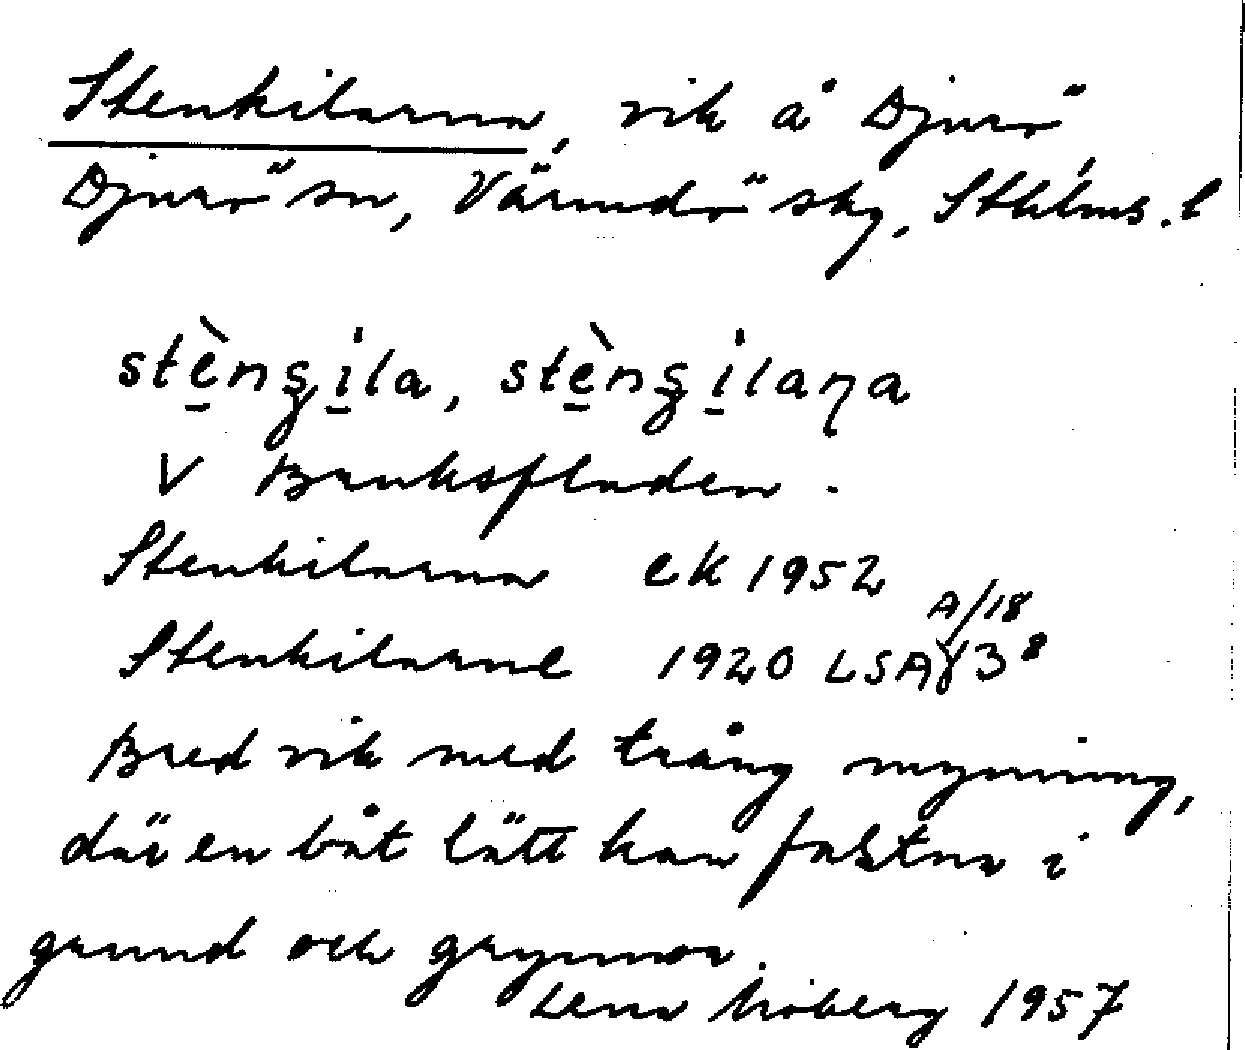 Stenkilarna, vik å Djurö
Djurö sn, Värmdö skg, Sthlms. l
stèngila, stèngilaɳa
V Bruksfladen.
Stenkilarna ek 1952
A/18
Stenkilarne 1920 LSA 3⁸
Bred vik med trång mynning,
där en båt lätt kan fastna i
grund och grynnor.
Lena Moberg 1957